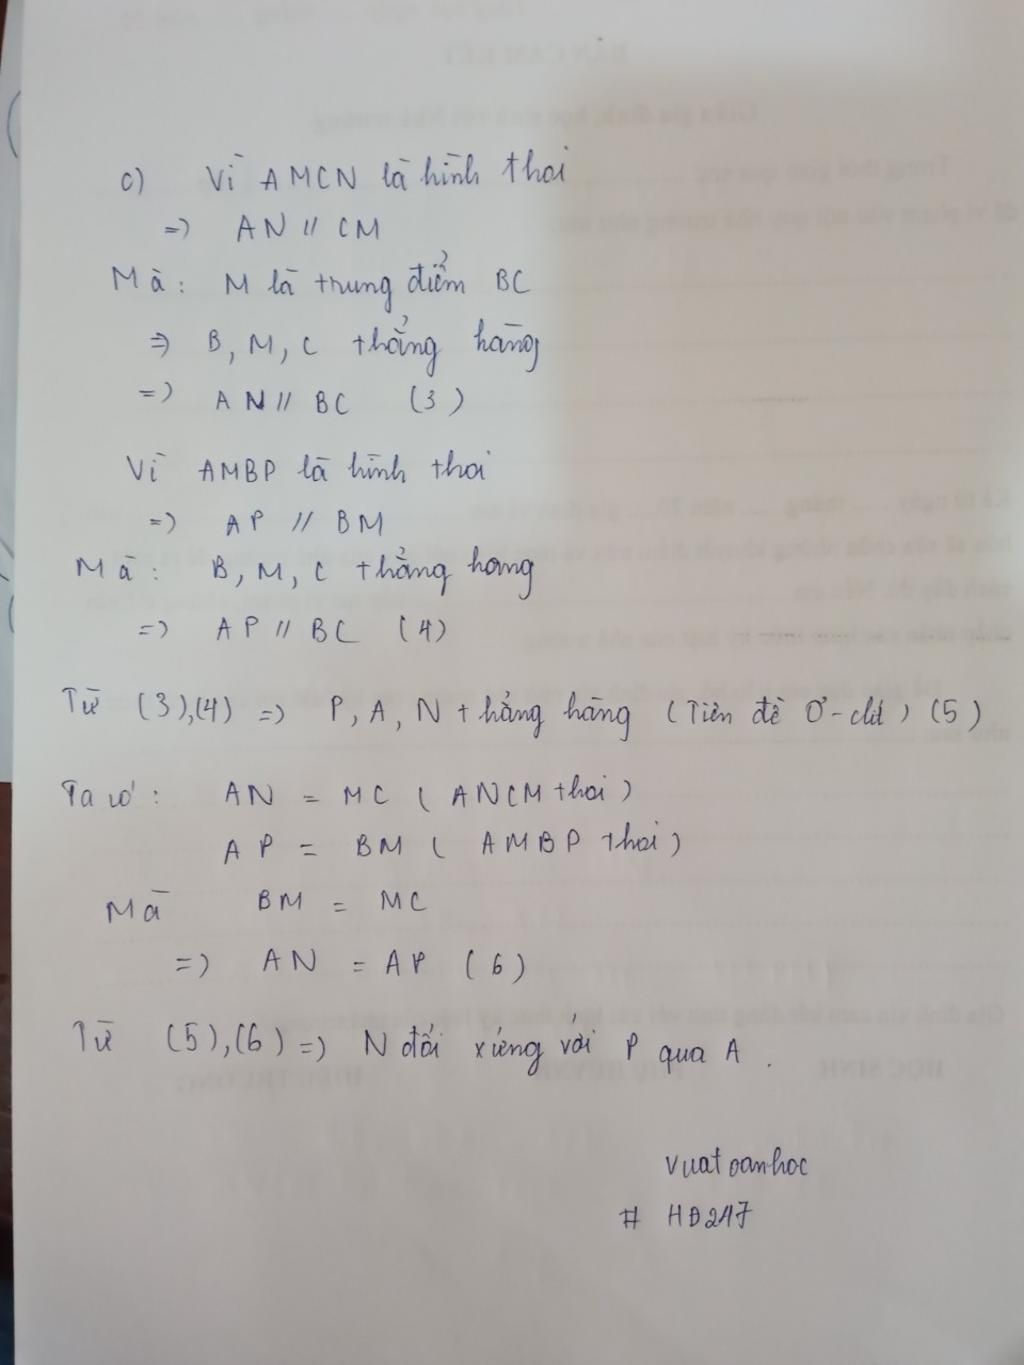 c) Vì AMCN là hình thoi
=) AN // CM
Mà: M là trung điểm BC
=> B, M, C thẳng hàng
=) AN // BC (3)
Vì AMBP là hình thoi
=) AP // BM
Mà: B, M, C thẳng hàng
=) AP // BC (4)
Từ (3),(4) =) P, A, N thẳng hàng (Tiên đề Ơ-clit) (5)
Ta có: AN = MC ( ANCM thoi)
AP = BM ( AMBP thoi)
Mà BM = MC
=) AN = AP (6)
Từ (5),(6) =) N đối xứng với P qua A.
vuatoanhoc
# HĐ247